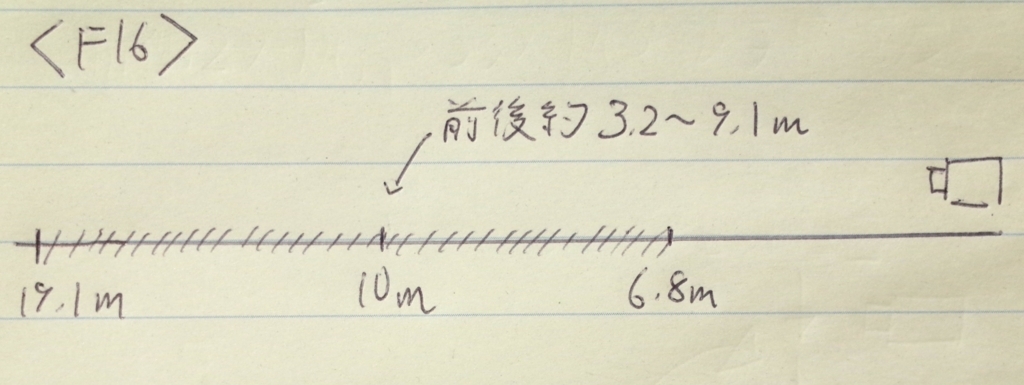 <F16>
前後約 3.2~9.1m
19.1m 10m 6.8m